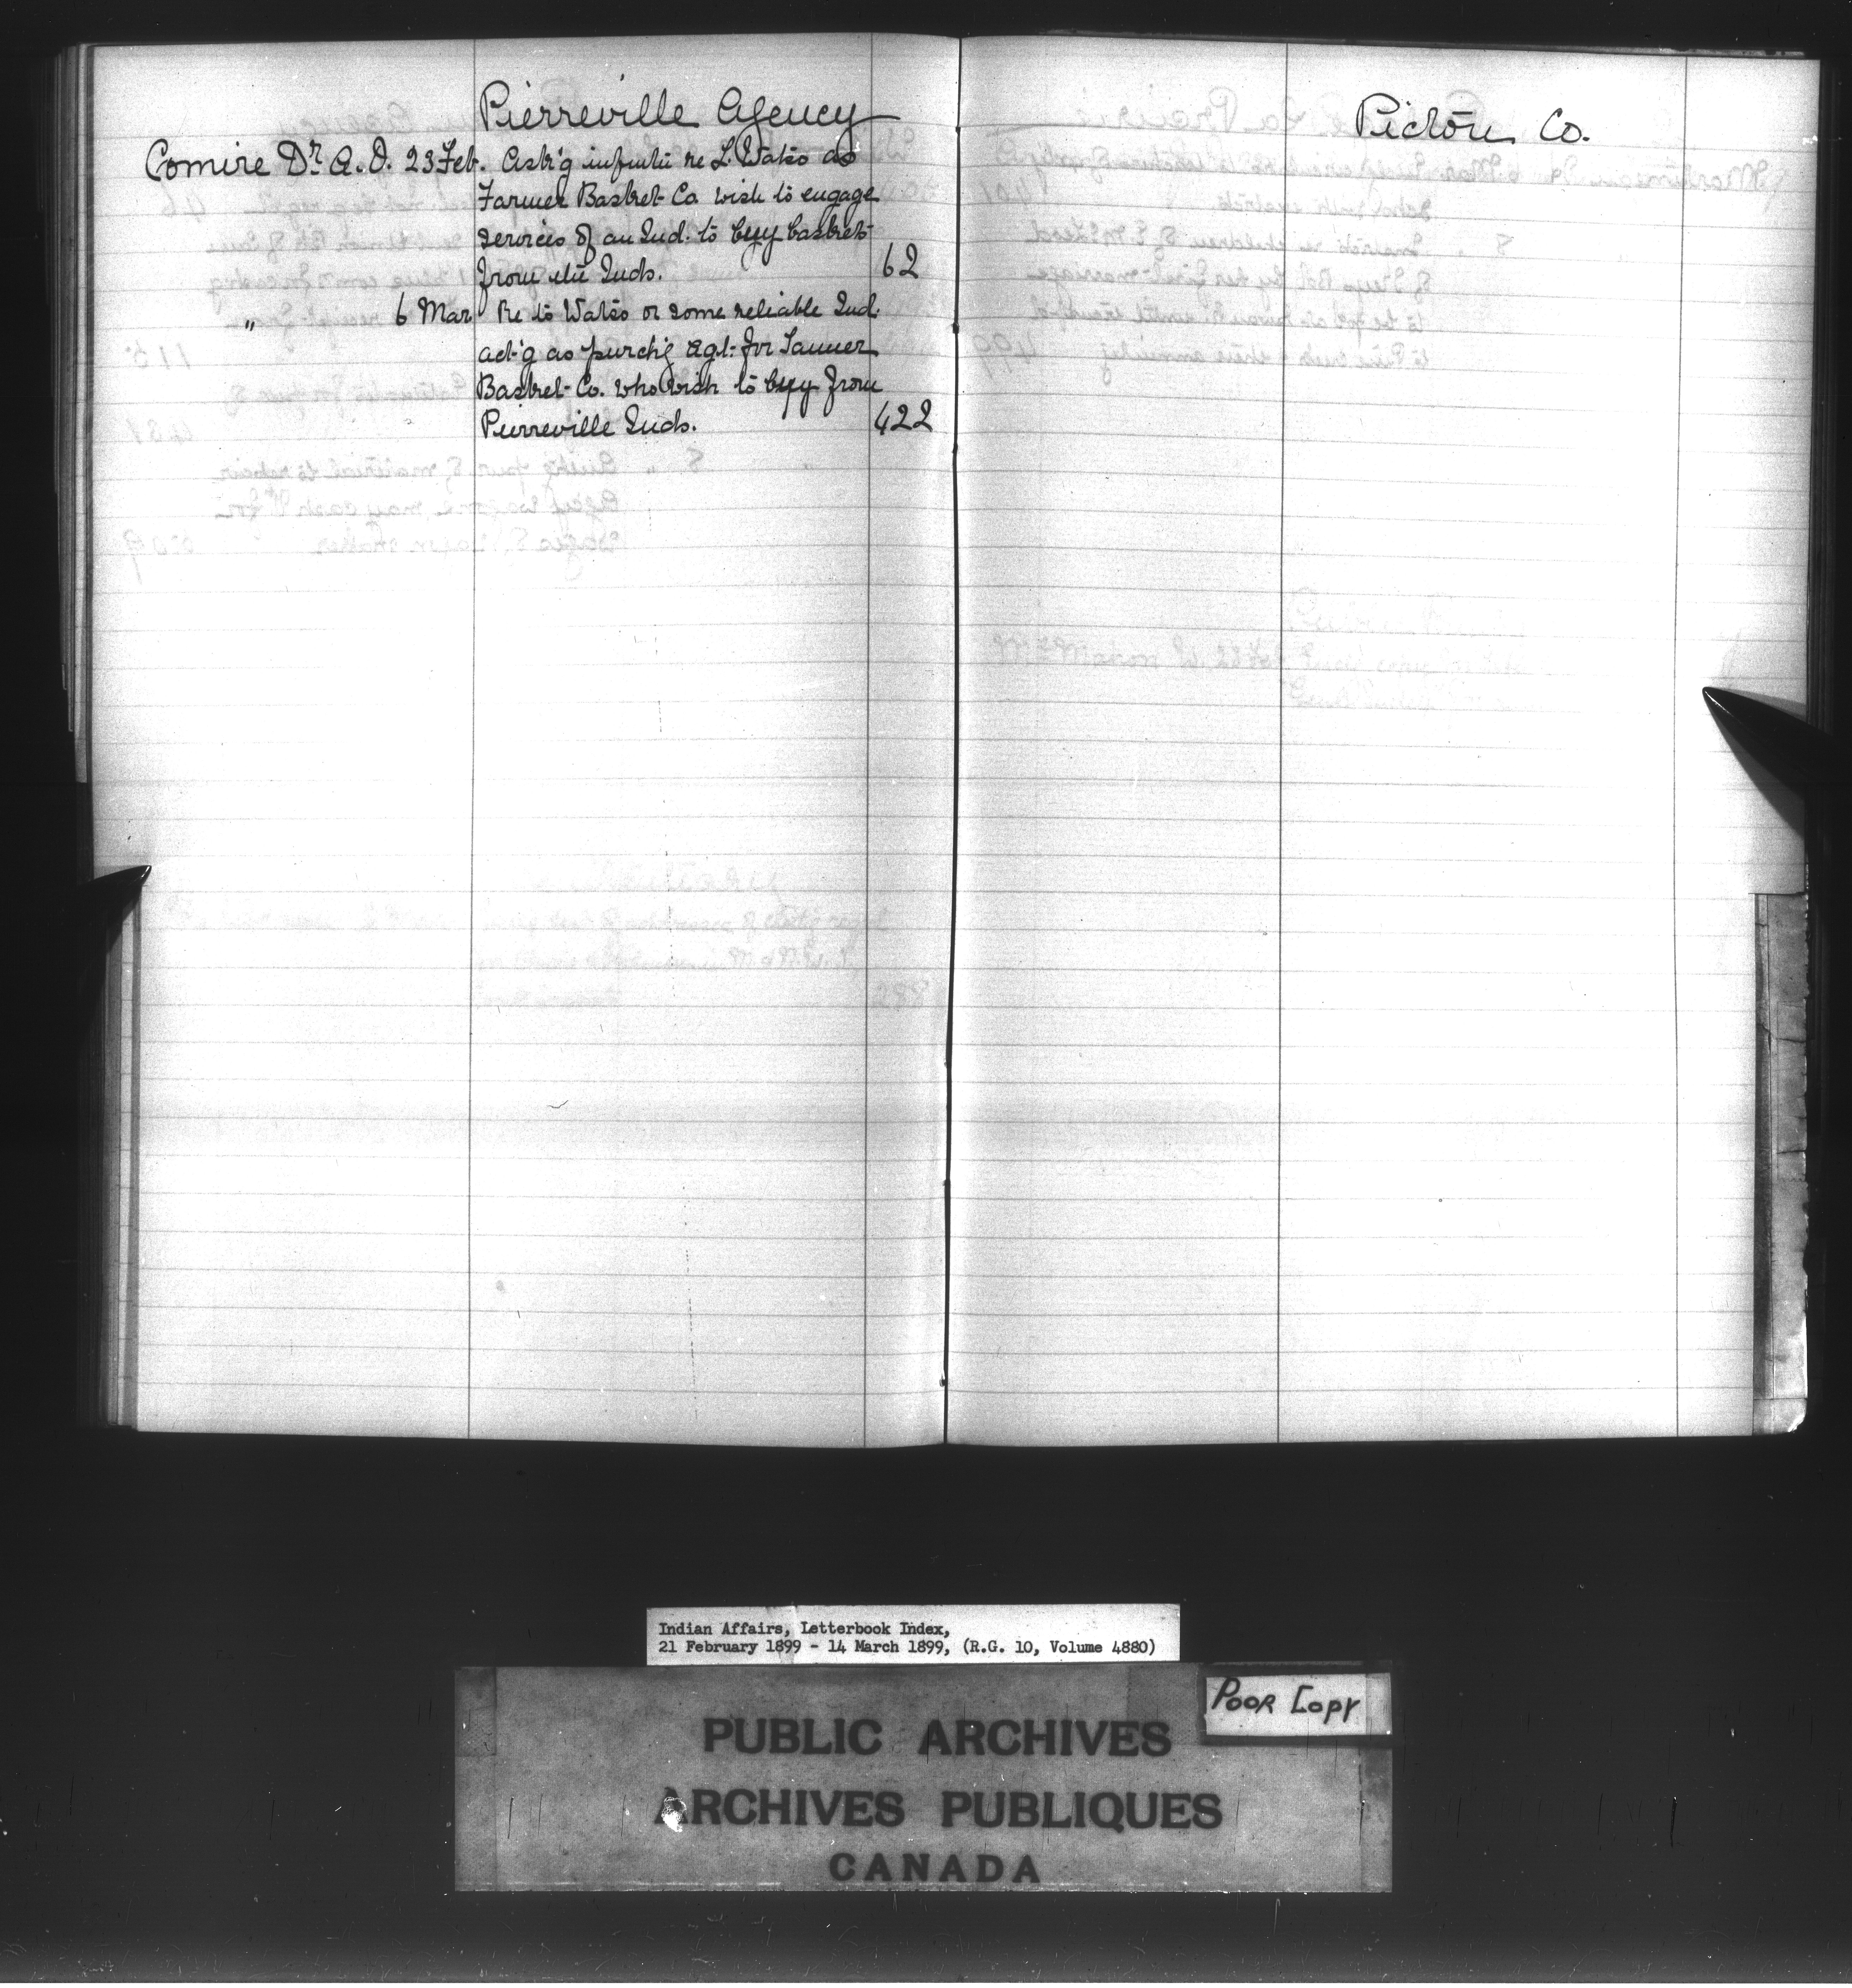 Pierreville Agency
Comire Dr. A. O. 23 Feb. Ask'g infmtn re L. Watso as
Farmer Basket Co. wish to engage
services of an Ind. to buy baskets
from the Inds. 62
" 6 Mar Re to Watso or some reliable Ind.
act'g as purch'g Agt. for Farmer
Basket Co. who wish to buy from
Pierreville Inds. 422
Pictou Co.
Indian Affairs, Letterbook Index,
21 February 1899 - 14 March 1899, (R.G. 10, Volume 4880)
POOR COPY
PUBLIC ARCHIVES
ARCHIVES PUBLIQUES
CANADA